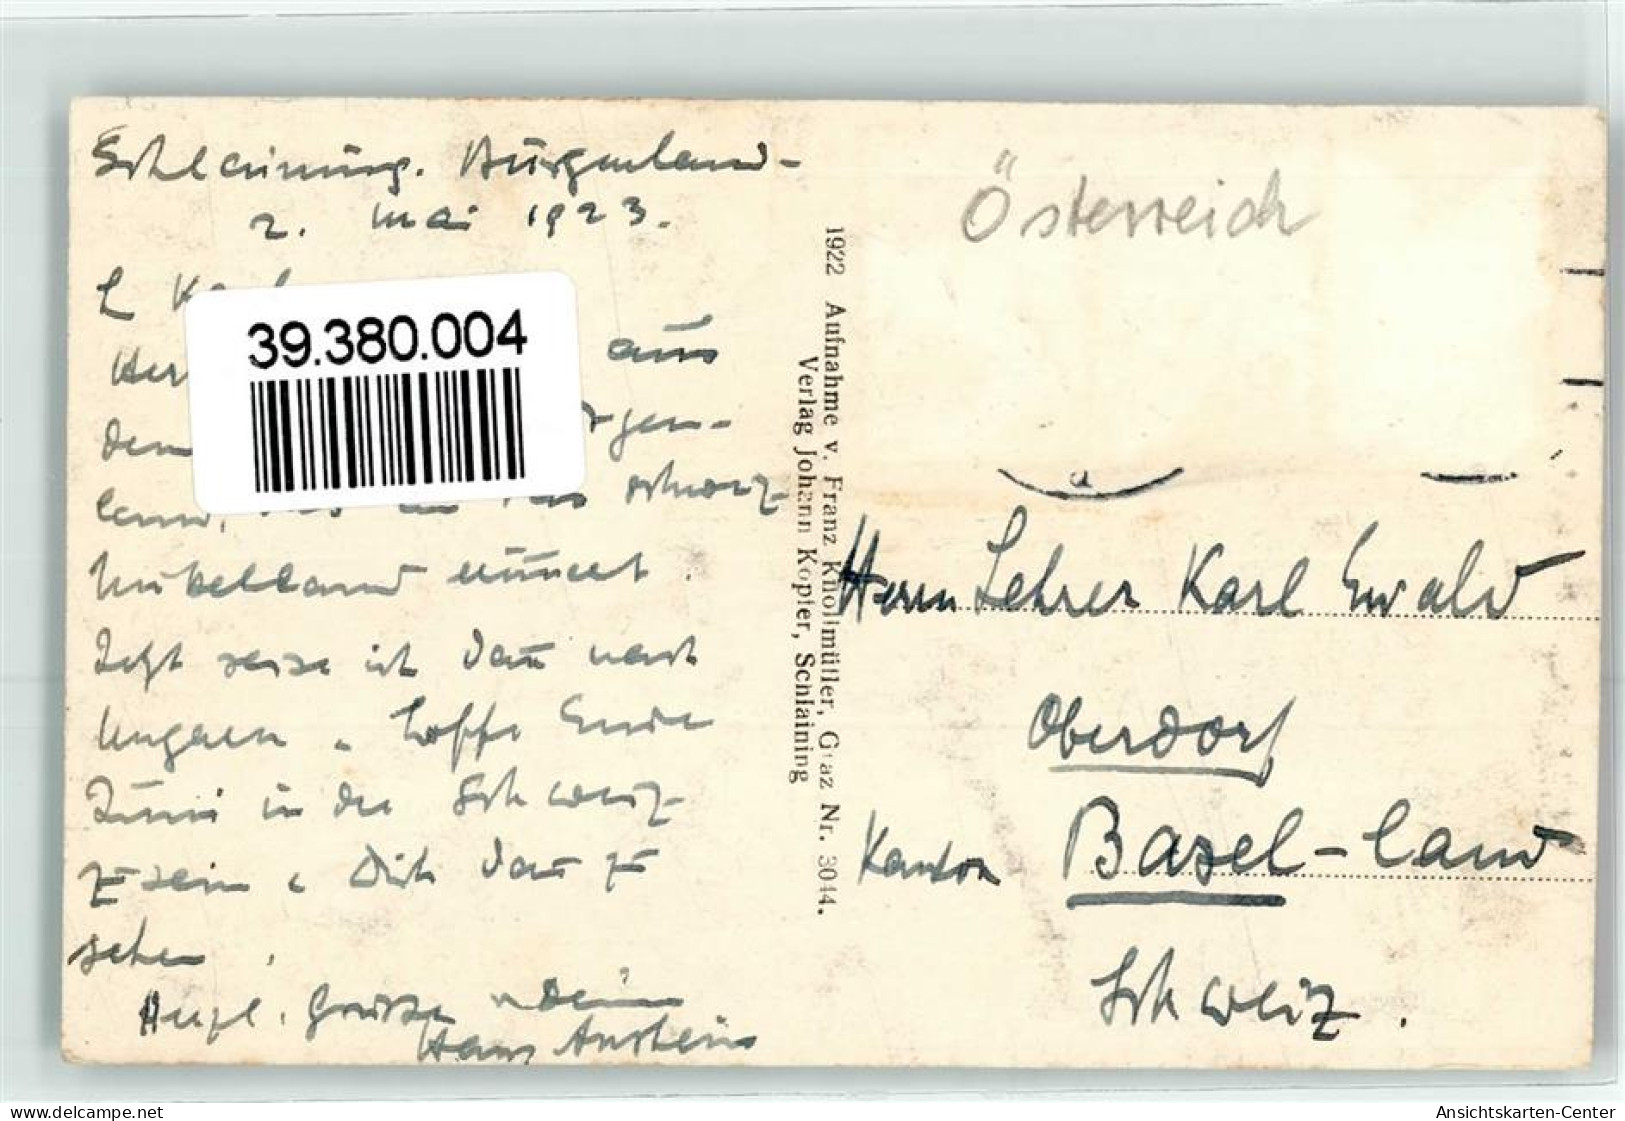 Schlaining. Burgenland -
2. Mai 1923.
L Karl
aus
dem
land,
Mittelland
Jetzt reise ich dann nach
Ungarn u. hoffe Ende
Juni in der Schweiz
zu sein u. Dich dann zu
sehen.
Herzl. Grüsse Dein
Hans
39.380.004
1922 Aufnahme v. Franz Knollmüller, Graz Nr. 3044.
Verlag Johann Kopfer, Schlaining
Österreich
a
Herrn Lehrer Karl Ewald
Oberdorf
Kanton Basel-land
Schweiz.
www.delcampe.net
Ansichtskarten-Center